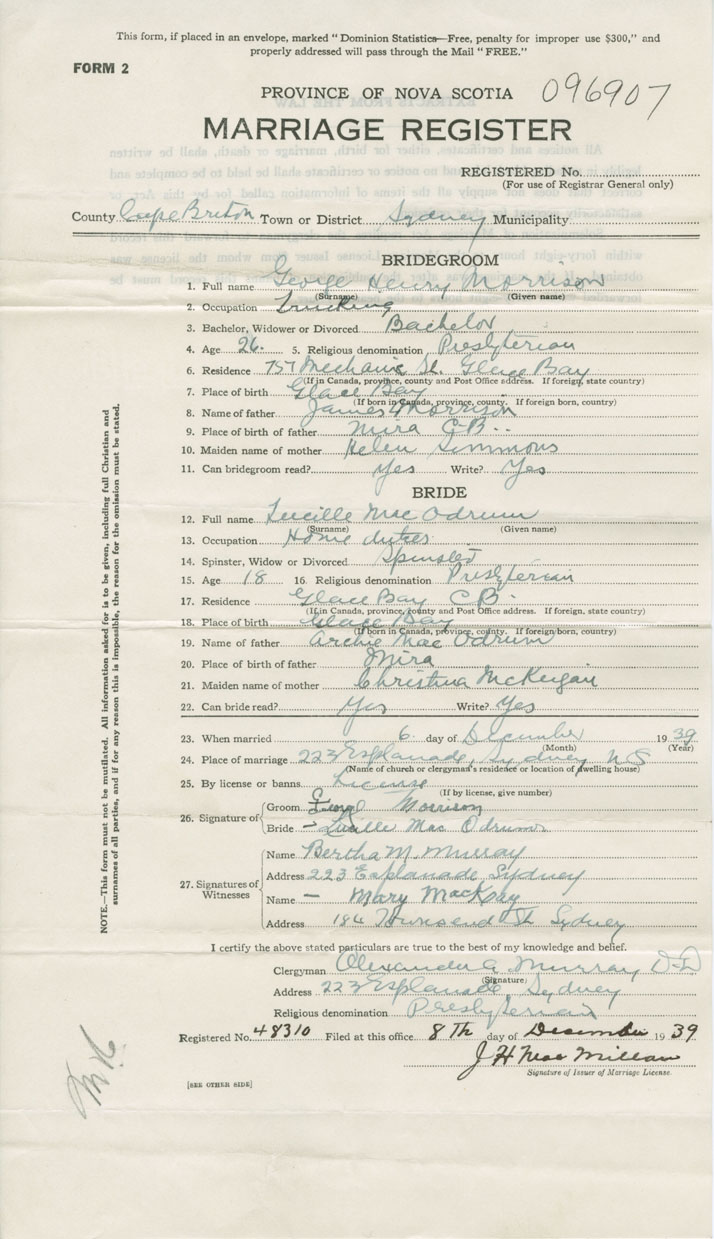 This form, if placed in an envelope, marked "Dominion Statistics—Free, penalty for improper use $300," and
properly addressed will pass through the Mail "FREE."
FORM 2
PROVINCE OF NOVA SCOTIA 096907
MARRIAGE REGISTER
REGISTERED No.
(For use of Registrar General only)
County Cape Breton Town or District Sydney Municipality
BRIDEGROOM
1. Full name George Henry Morrison
(Surname) (Given name)
2. Occupation Trucking
3. Bachelor, Widower or Divorced Bachelor
4. Age 26. 5. Religious denomination Presbyterian
6. Residence 757 Mechanic St. Glace Bay
(If in Canada, province, county and Post Office address. If foreign, state country)
7. Place of birth Glace Bay
(If born in Canada, province, county. If foreign born, country)
8. Name of father James Morrison
9. Place of birth of father Mira C.B.
10. Maiden name of mother Helen Simmons
11. Can bridegroom read? Yes Write? Yes
BRIDE
12. Full name Lucille Mac Odrum
(Surname) (Given name)
13. Occupation Home duties
14. Spinster, Widow or Divorced Spinster
15. Age 18 16. Religious denomination Presbyterian
17. Residence Glace Bay C B.
(If in Canada, province, county and Post Office address. If foreign, state country)
18. Place of birth Glace Bay
(If born in Canada, province, county. If foreign born, country)
19. Name of father Archie Mac Odrum
20. Place of birth of father Mira
21. Maiden name of mother Christina McKeigan
22. Can bride read? Yes Write? Yes
23. When married 6 day of December 1939
(Month) (Year)
24. Place of marriage 223 Esplanade, Sydney N S
(Name of church or clergyman's residence or location of dwelling house)
25. By license or banns License
(If by license, give number)
26. Signature of
Groom George Morrison
Bride — Lucille Mac Odrum
27. Signatures of Witnesses
Name Bertha M. Murray
Address 223 Esplanade Sydney
Name — Mary MacKay
Address 184 Townsend St Sydney
I certify the above stated particulars are true to the best of my knowledge and belief.
Clergyman Alexander A. Murray
(Signature)
Address 223 Esplanade, Sydney
Religious denomination Presbyterian
Registered No. 48310 Filed at this office 8th day of December 1939
J H Mac Millan
Signature of Issuer of Marriage License.
[SEE OTHER SIDE]
NOTE.—This form must not be mutilated. All information asked for is to be given, including full Christian and
surnames of all parties, and if for any reason this is impossible, the reason for the omission must be stated.